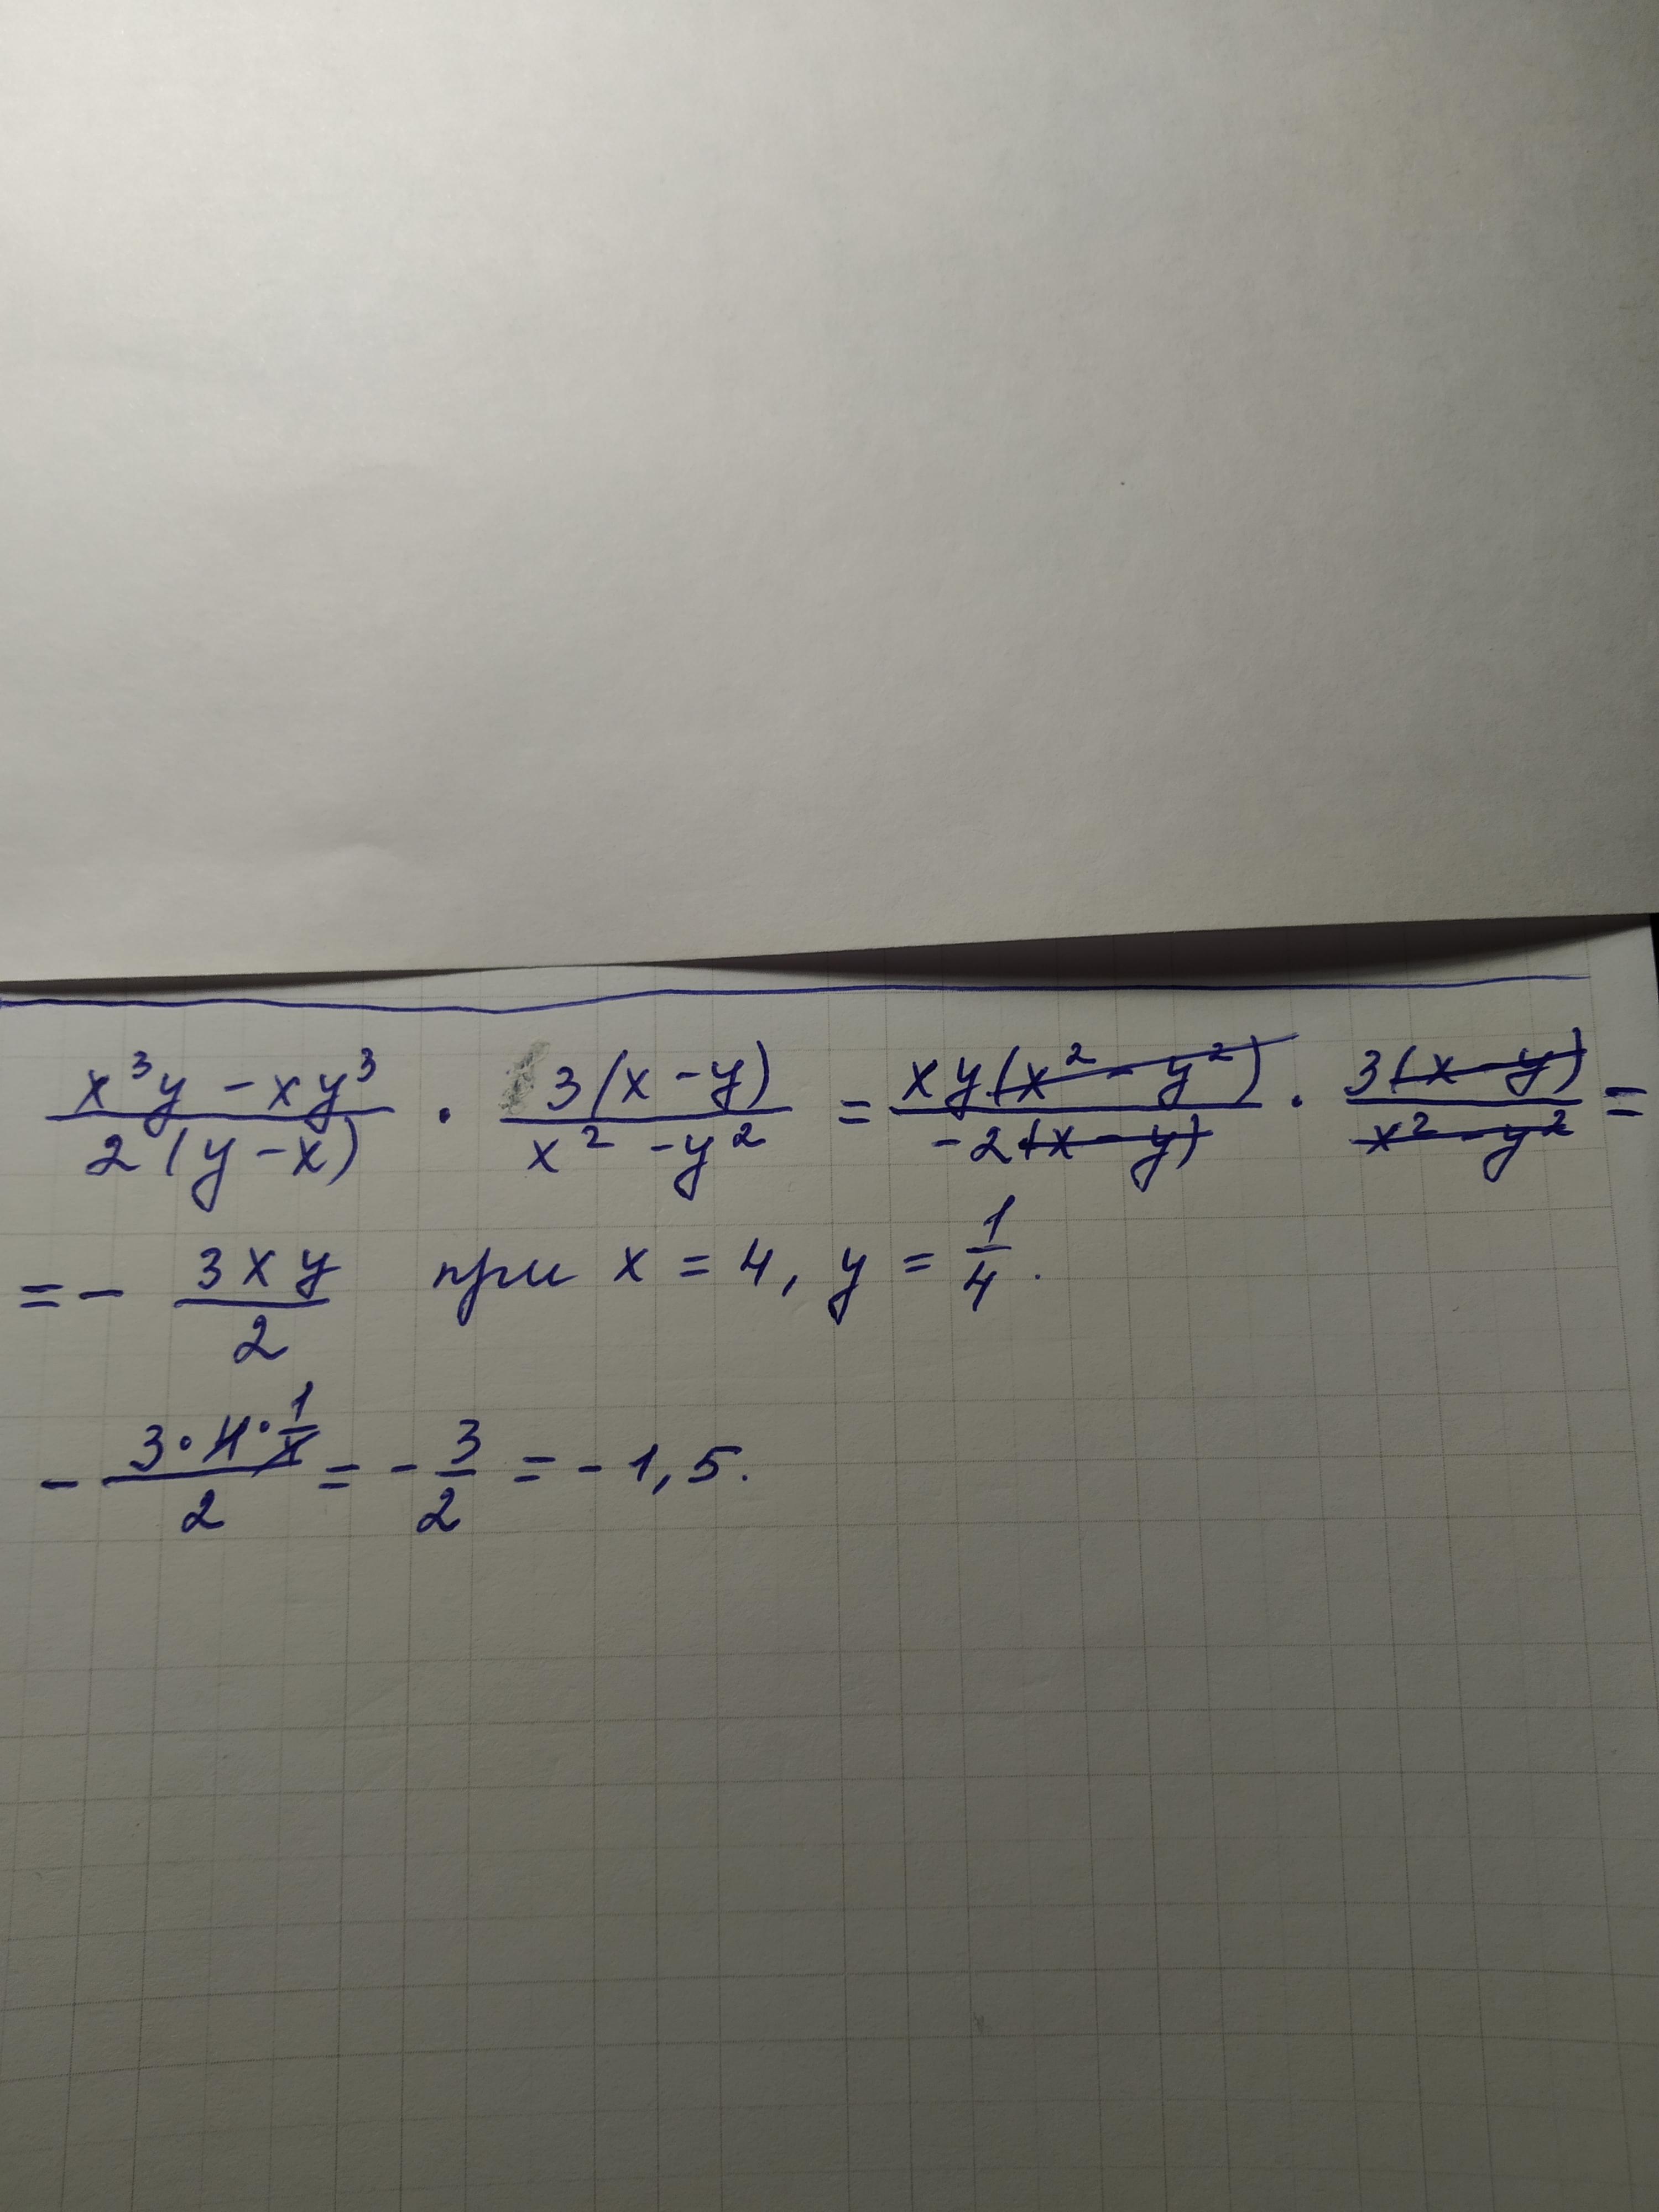 (x³y - xy³)/(2(y - x)) · (3(x - y))/(x² - y²) = (xy(x² - y²))/(-2(x - y)) · (3(x - y))/(x² - y²) =
= - (3xy)/2 при x = 4, y = 1/4.
- (3 · 4 · 1/4)/2 = - 3/2 = - 1,5.